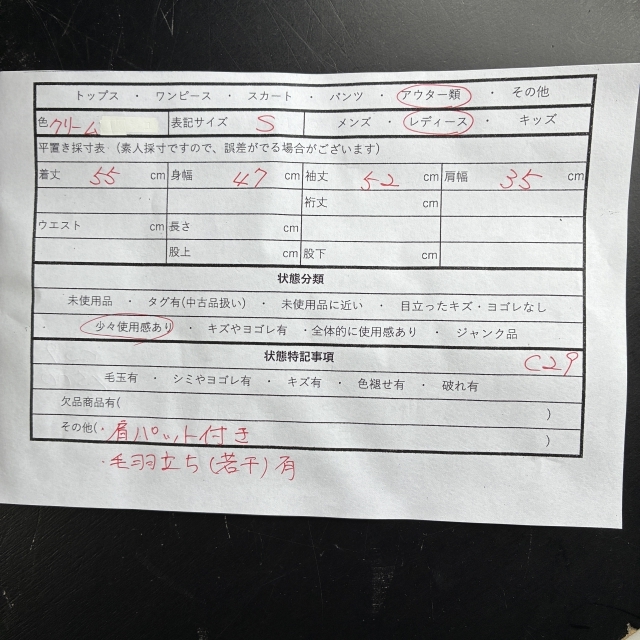 トップス ・ ワンピース ・ スカート ・ パンツ ・ アウター類 ・ その他
色 クリーム 表記サイズ S メンズ ・ レディース ・ キッズ
平置き採寸表 (素人採寸ですので、誤差がでる場合がございます)
着丈 55 cm 身幅 47 cm 袖丈 52 cm 肩幅 35 cm
裄丈 cm
ウエスト cm 長さ cm
股上 cm 股下 cm
状態分類
未使用品 ・ タグ有(中古品扱い) ・ 未使用品に近い ・ 目立ったキズ・ヨゴレなし
・ 少々使用感あり ・ キズやヨゴレ有 ・全体的に使用感あり ・ ジャンク品
状態特記事項 C29
毛玉有 ・ シミやヨゴレ有 ・ キズ有 ・ 色褪せ有 ・ 破れ有
欠品商品有( )
その他(・肩パット付き )
・毛羽立ち(若干)有